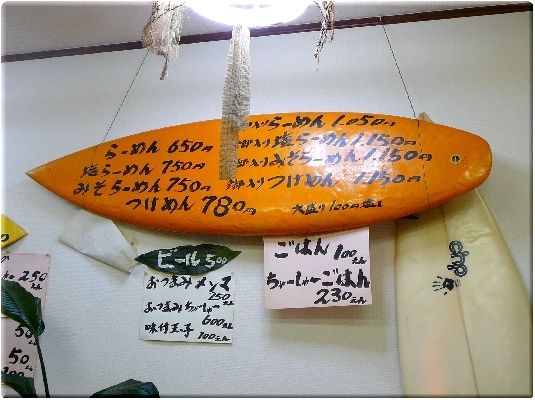 らーめん 650円
塩らーめん 750円
みそらーめん 750円
つけめん 780円
入りらーめん 1.050円
入り塩らーめん 1.150円
入りみそらーめん 1.150円
入りつけめん 1.150円
大盛り100円増し
ビール 500
おつまみメンマ
250えん
おつまみちゃーしゅー
600えん
味付玉子
100えん
ごはん 100えん
ちゃーしゅーごはん
230えん
250
50
50
100えん